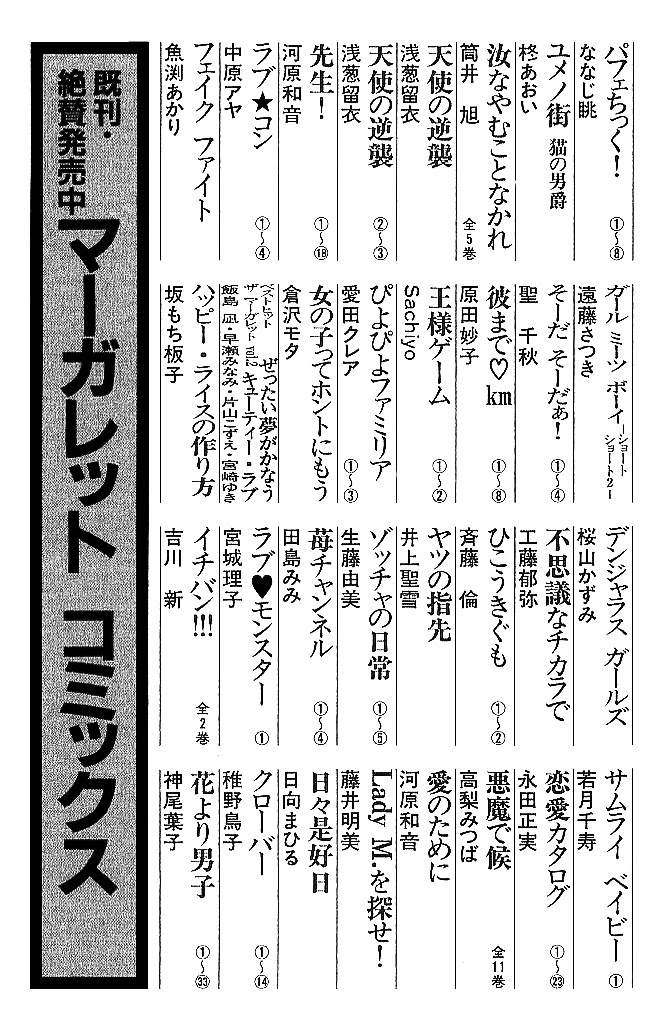 パフェちっく！ ①〜⑧
ななじ眺
ユメノ街 猫の男爵
柊あおい
汝なやむことなかれ 全5巻
筒井 旭
天使の逆襲
浅葱留衣
天使の逆襲 ②〜③
浅葱留衣
先生！ ①〜⑱
河原和音
ラブ★コン ①〜④
中原アヤ
フェイク ファイト
魚渕あかり
ガール ミーツ ボーイ－ショートショート2－
遠藤さつき
そーだ そーだぁ！ ①〜④
聖 千秋
彼まで♡km ①〜⑧
原田妙子
王様ゲーム ①〜②
Sachiyo
ぴよぴよファミリア ①〜③
愛田クレア
女の子ってホントにもう
倉沢モタ
ベストヒット ザ マーガレット vol.2 ぜったい夢がかなう キューティー・ラブ
飯島 凪・早瀬みなみ・片山こずえ・宮崎ゆき
ハッピー・ライスの作り方
坂もち板子
デンジャラス ガールズ
桜山かずみ
不思議なチカラで
工藤郁弥
ひこうきぐも ①〜②
斉藤 倫
ヤツの指先
井上聖雪
ゾッチャの日常 ①〜⑤
生藤由美
苺チャンネル ①〜④
田島みみ
ラブ♥モンスター ①
宮城理子
イチバン!!! 全2巻
吉川 新
サムライ ベイビー ①
若月千寿
恋愛カタログ ①〜㉓
永田正実
悪魔で候 全11巻
高梨みつば
愛のために
河原和音
Lady M.を探せ！
藤井明美
日々是好日
日向まひる
クローバー ①〜⑭
稚野鳥子
花より男子 ①〜㉝
神尾葉子
既刊・
絶賛発売中
マーガレット コミックス